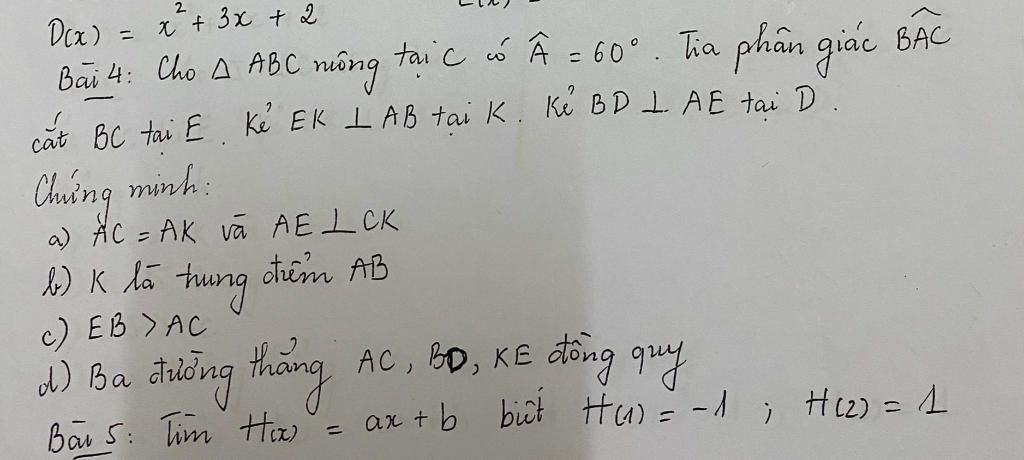 D(x) = x² + 3x + 2
Bài 4: Cho Δ ABC vuông tại C có Â = 60°. Tia phân giác \widehat{BAC}
cắt BC tại E. Kẻ EK ⊥ AB tại K. Kẻ BD ⊥ AE tại D.
Chứng minh:
a) AC = AK và AE ⊥ CK
b) K là trung điểm AB
c) EB > AC
d) Ba đường thẳng AC, BD, KE đồng quy
Bài 5: Tìm H(x) = ax + b biết H(1) = -1 ; H(2) = 1